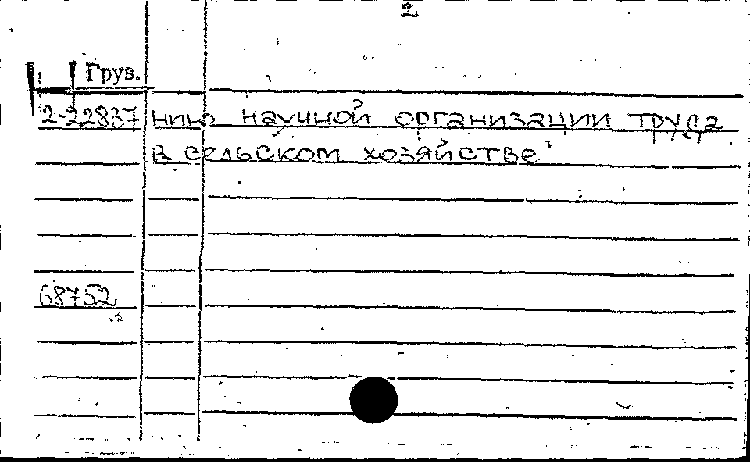 2
Груз.
2-22837 нию научной организации труда
в сельском хозяйстве
68752